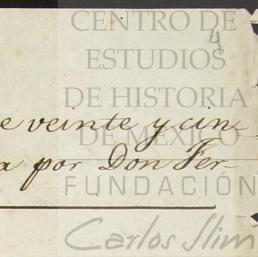 CENTRO DE
4
ESTUDIOS
DE HISTORIA
e veinte y cin-
DE MÉXICO
a por Don Fer-
FUNDACIÓN
Carlos Slim